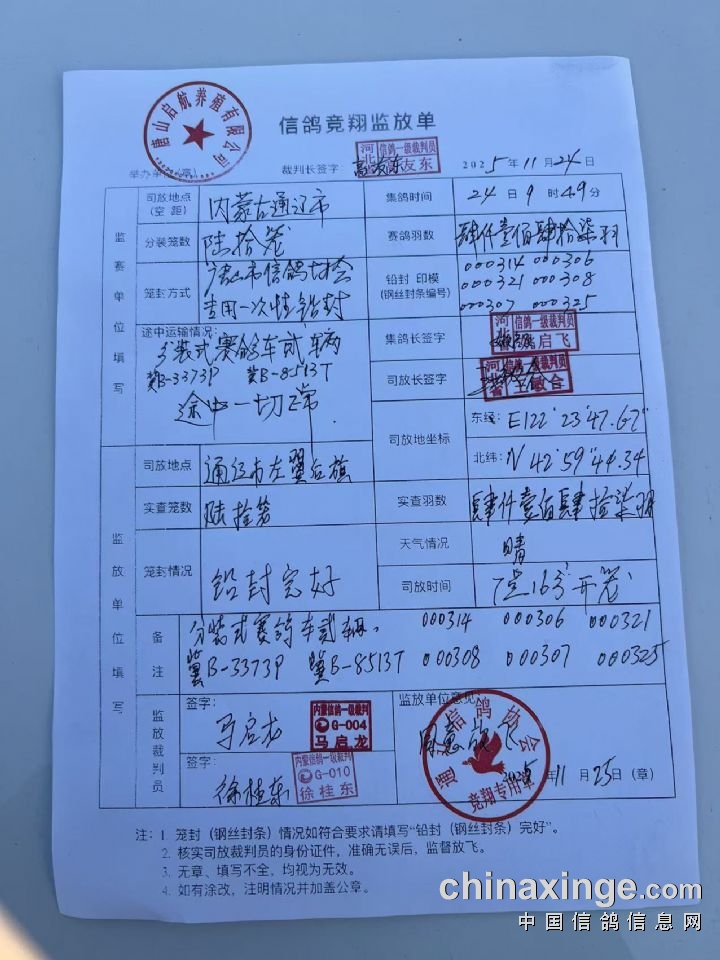 唐山启航养殖有限公司
信鸽竞翔监放单
举办单位(章)
裁判长签字:
河北
信鸽一级裁判员
高友东
2025年11月24日
监赛单位填写
司放地点
(空 距)
内蒙古通辽市
集鸽时间
24日9时49分
分装笼数
陆拾笼
赛鸽羽数
肆仟壹佰肆拾柒羽
笼封方式
唐山市信鸽协会
专用一次性铅封
铅封 印模
(钢丝封条编号)
000314 000306
000321 000308
000307 000325
途中运输情况:
分装式赛鸽车贰辆
冀B-3373P 冀B-8513T
途中一切正常
集鸽长签字
河
信鸽一级裁判员
启飞
司放长签字
河
信鸽一级裁判员
王敏合
司放地坐标
东经: E122°23'47.67"
北纬: N 42°59'44.34
监放单位填写
司放地点
通辽市左翼后旗
实查笼数
陆拾笼
实查羽数
肆仟壹佰肆拾柒羽
笼封情况
铅封完好
天气情况
晴
司放时间
7点16分开笼
备注
分装式赛鸽车贰辆. 000314 000306 000321
冀B-3373P 冀B-8513T 000308 000307 000325
监放裁判员
签字:
马启龙
内蒙信鸽一级裁判
G-004
马启龙
签字:
徐桂东
内蒙信鸽一级裁判
G-010
徐桂东
监放单位意见:
同意放飞
信鸽协会
竞翔专用章
2025年11月25日(章)
注: 1. 笼封(钢丝封条)情况如符合要求请填写“铅封(钢丝封条)完好”。
2. 核实司放裁判员的身份证件,准确无误后,监督放飞。
3. 无章、填写不全,均视为无效。
4. 如有涂改,注明情况并加盖公章。
chinaxinge.com
中国信鸽信息网